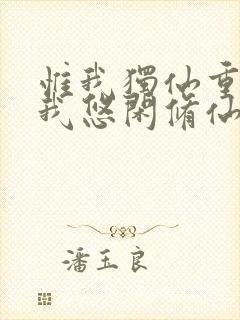 惟我獨仙重
我悠閑脩仙
潘玉良